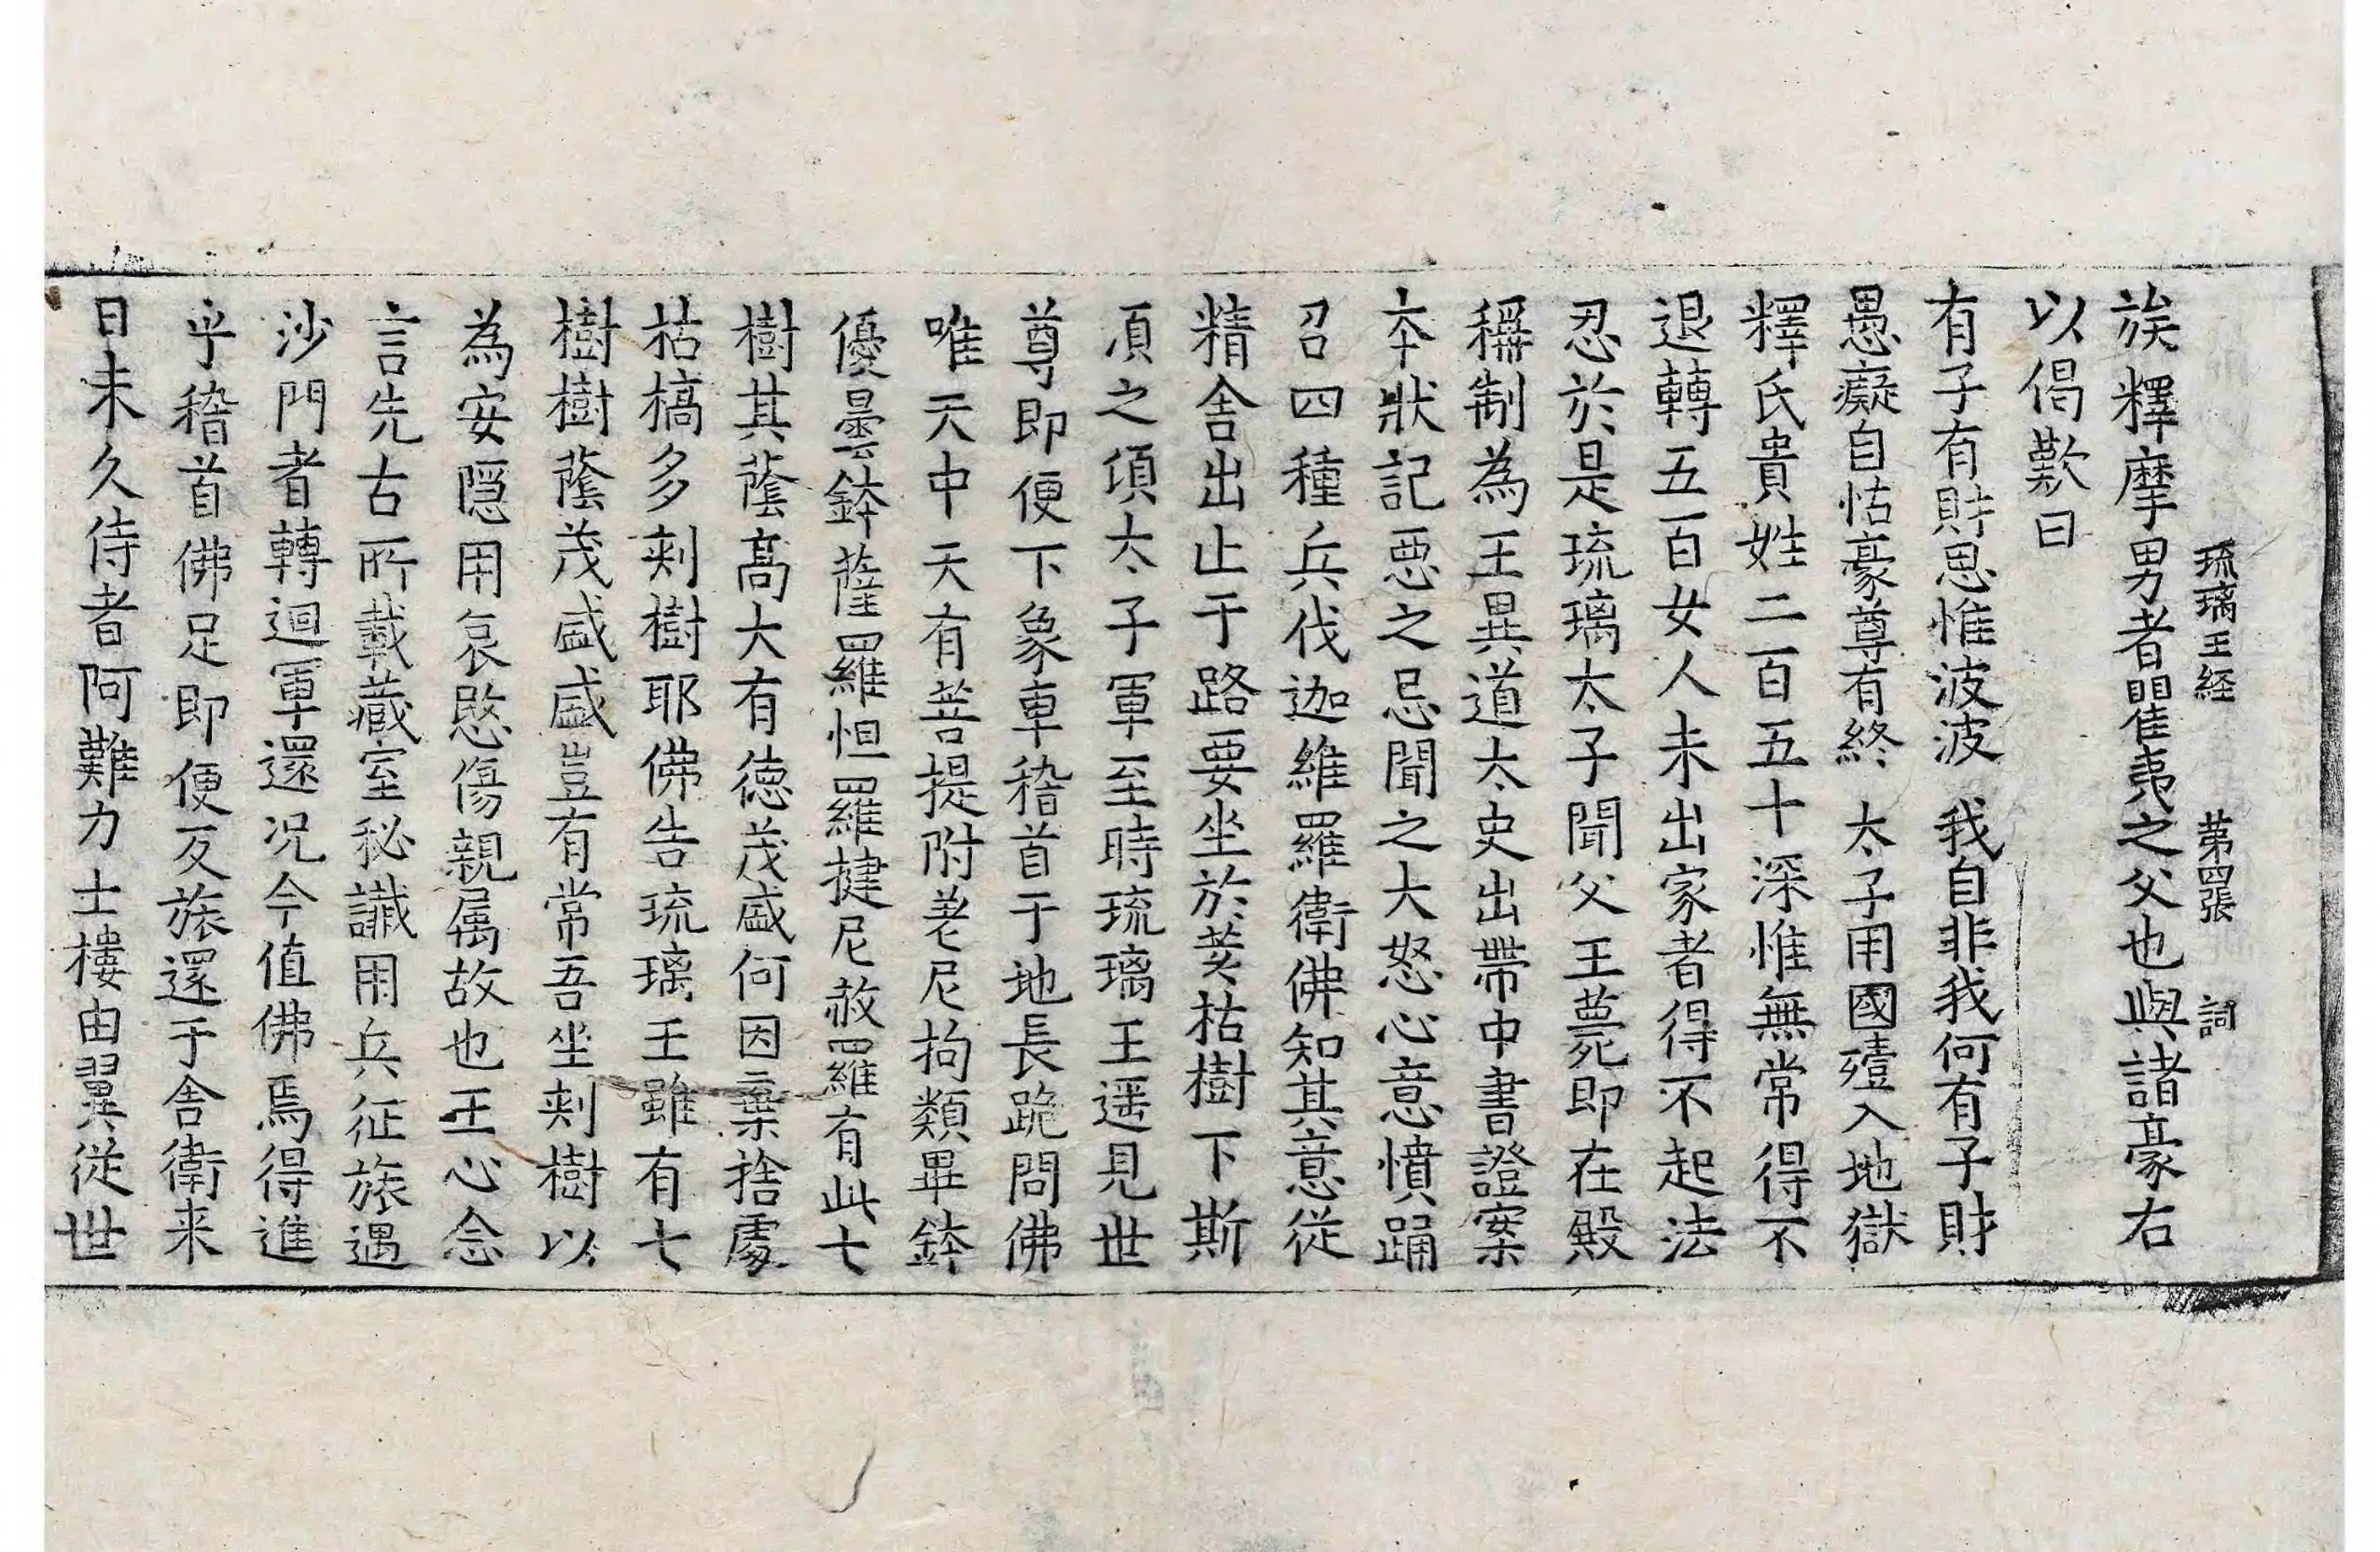 琉璃王経 第四張 詞
族釋摩男者瞿夷之父也與諸豪右
以偈歎曰
有子有財思惟波波 我自非我何有子財
愚癡自怙豪尊有終 太子用國殪入地獄
釋氏貴姓二百五十深惟無常得不
退轉五百女人未出家者得不起法
忍於是琉璃太子聞父王薨即在殿
稱制為王異道太史出帶中書證案
本狀記惡之忌聞之大怒心意憤踊
召四種兵伐迦維羅衛佛知其意從
精舍出止于路要坐於荄枯樹下斯
須之頃太子軍至時琉璃王遥見世
尊即便下象車稽首于地長跪問佛
唯天中天有菩提附差尼拘類畢鉢
優曇鉢薩羅怛羅揵尼赦羅有此七
樹其蔭髙大有德茂盛何因棄捨處
枯槁多刺樹耶佛告琉璃王雖有七
樹樹蔭茂盛盛豈有常吾坐刺樹以
為安隠用哀愍傷親属故也王心念
言先古所載藏室秘讖用兵征旅遇
沙門者轉迴軍還况今值佛焉得進
乎稽首佛足即便反旅還于舍衛来
日未久侍者阿難力士樓由翼從世